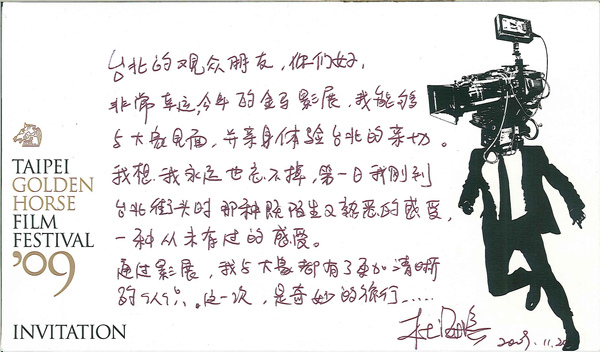 台北的观众朋友，你们好，
非常幸运，今年的金马影展，我能够
与大家见面，并亲身体验台北的亲切。
我想，我永远也忘不掉，第一日我刚到
台北街头时，那种既陌生又熟悉的感受，
一种从未有过的感受。
通过影展，我与大家都有了更加清晰
的认识。这一次，是奇妙的旅行.....
TAIPEI
GOLDEN
HORSE
FILM
FESTIVAL
'09
INVITATION